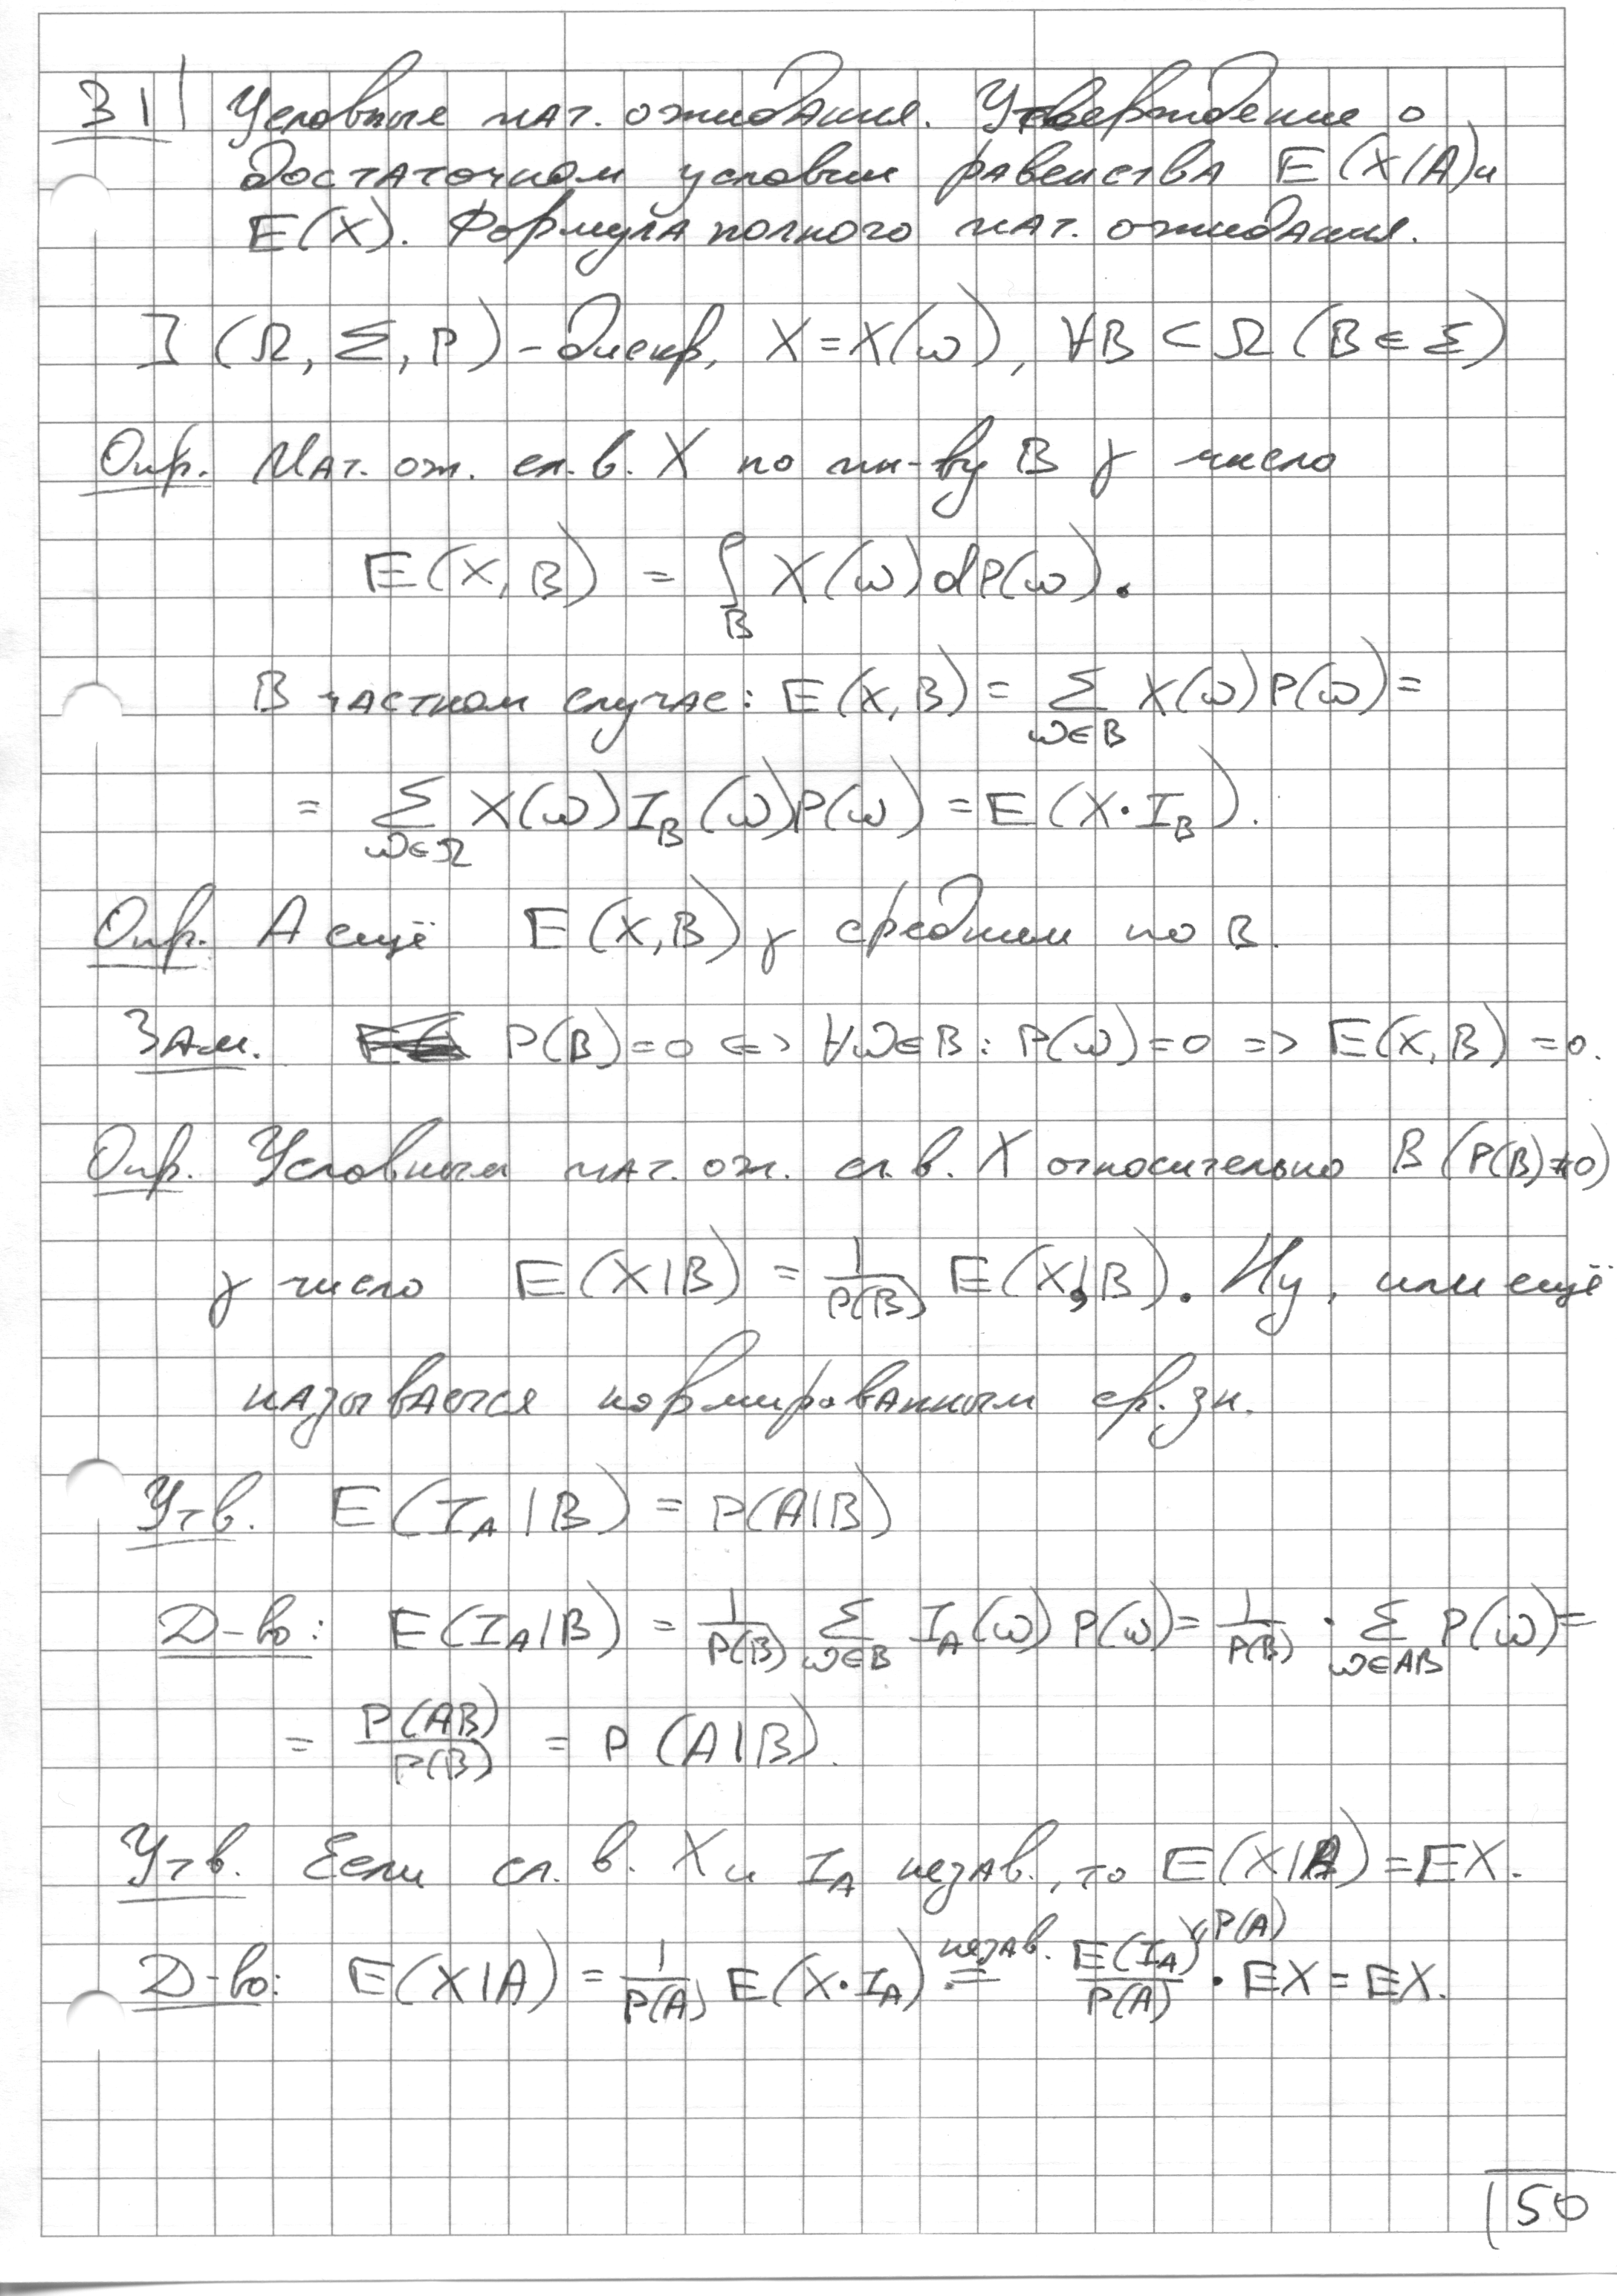 31 Условные мат. ожидания. Утверждение о
достаточном условии равенства E(X|A) и
E(X). Формула полного мат. ожидания.
] (Ω, Σ, P) – дискр, X = X(ω), ∀B ⊂ Ω (B ∈ Σ)
Опр. Мат. ож. сл. в. X по мн-ву B γ число
E(X, B) = ∫_B X(ω) dP(ω).
В частном случае: E(X, B) = Σ_{ω∈B} X(ω) P(ω) =
= Σ_{ω∈Ω} X(ω) I_B(ω) P(ω) = E(X·I_B).
Опр. А ещё E(X, B) γ средним по B.
Зам. P(B) = 0 <=> ∀ω∈B: P(ω) = 0 => E(X, B) = 0.
Опр. Условным мат. ож. сл. в. X относительно B (P(B)≠0)
γ число E(X|B) = 1/P(B) E(X, B). Ну, или ещё
называется нормированным ср. зн.
Утв. E(I_A|B) = P(A|B)
Д-во: E(I_A|B) = 1/P(B) Σ_{ω∈B} I_A(ω) P(ω) = 1/P(B) · Σ_{ω∈AB} P(ω) =
= P(AB)/P(B) = P(A|B).
Утв. Если сл. в. X и I_A незав., то E(X|A) = EX.
Д-во: E(X|A) = 1/P(A) E(X·I_A) незав. = E(I_A)/P(A) · EX = EX.
P(A)
50